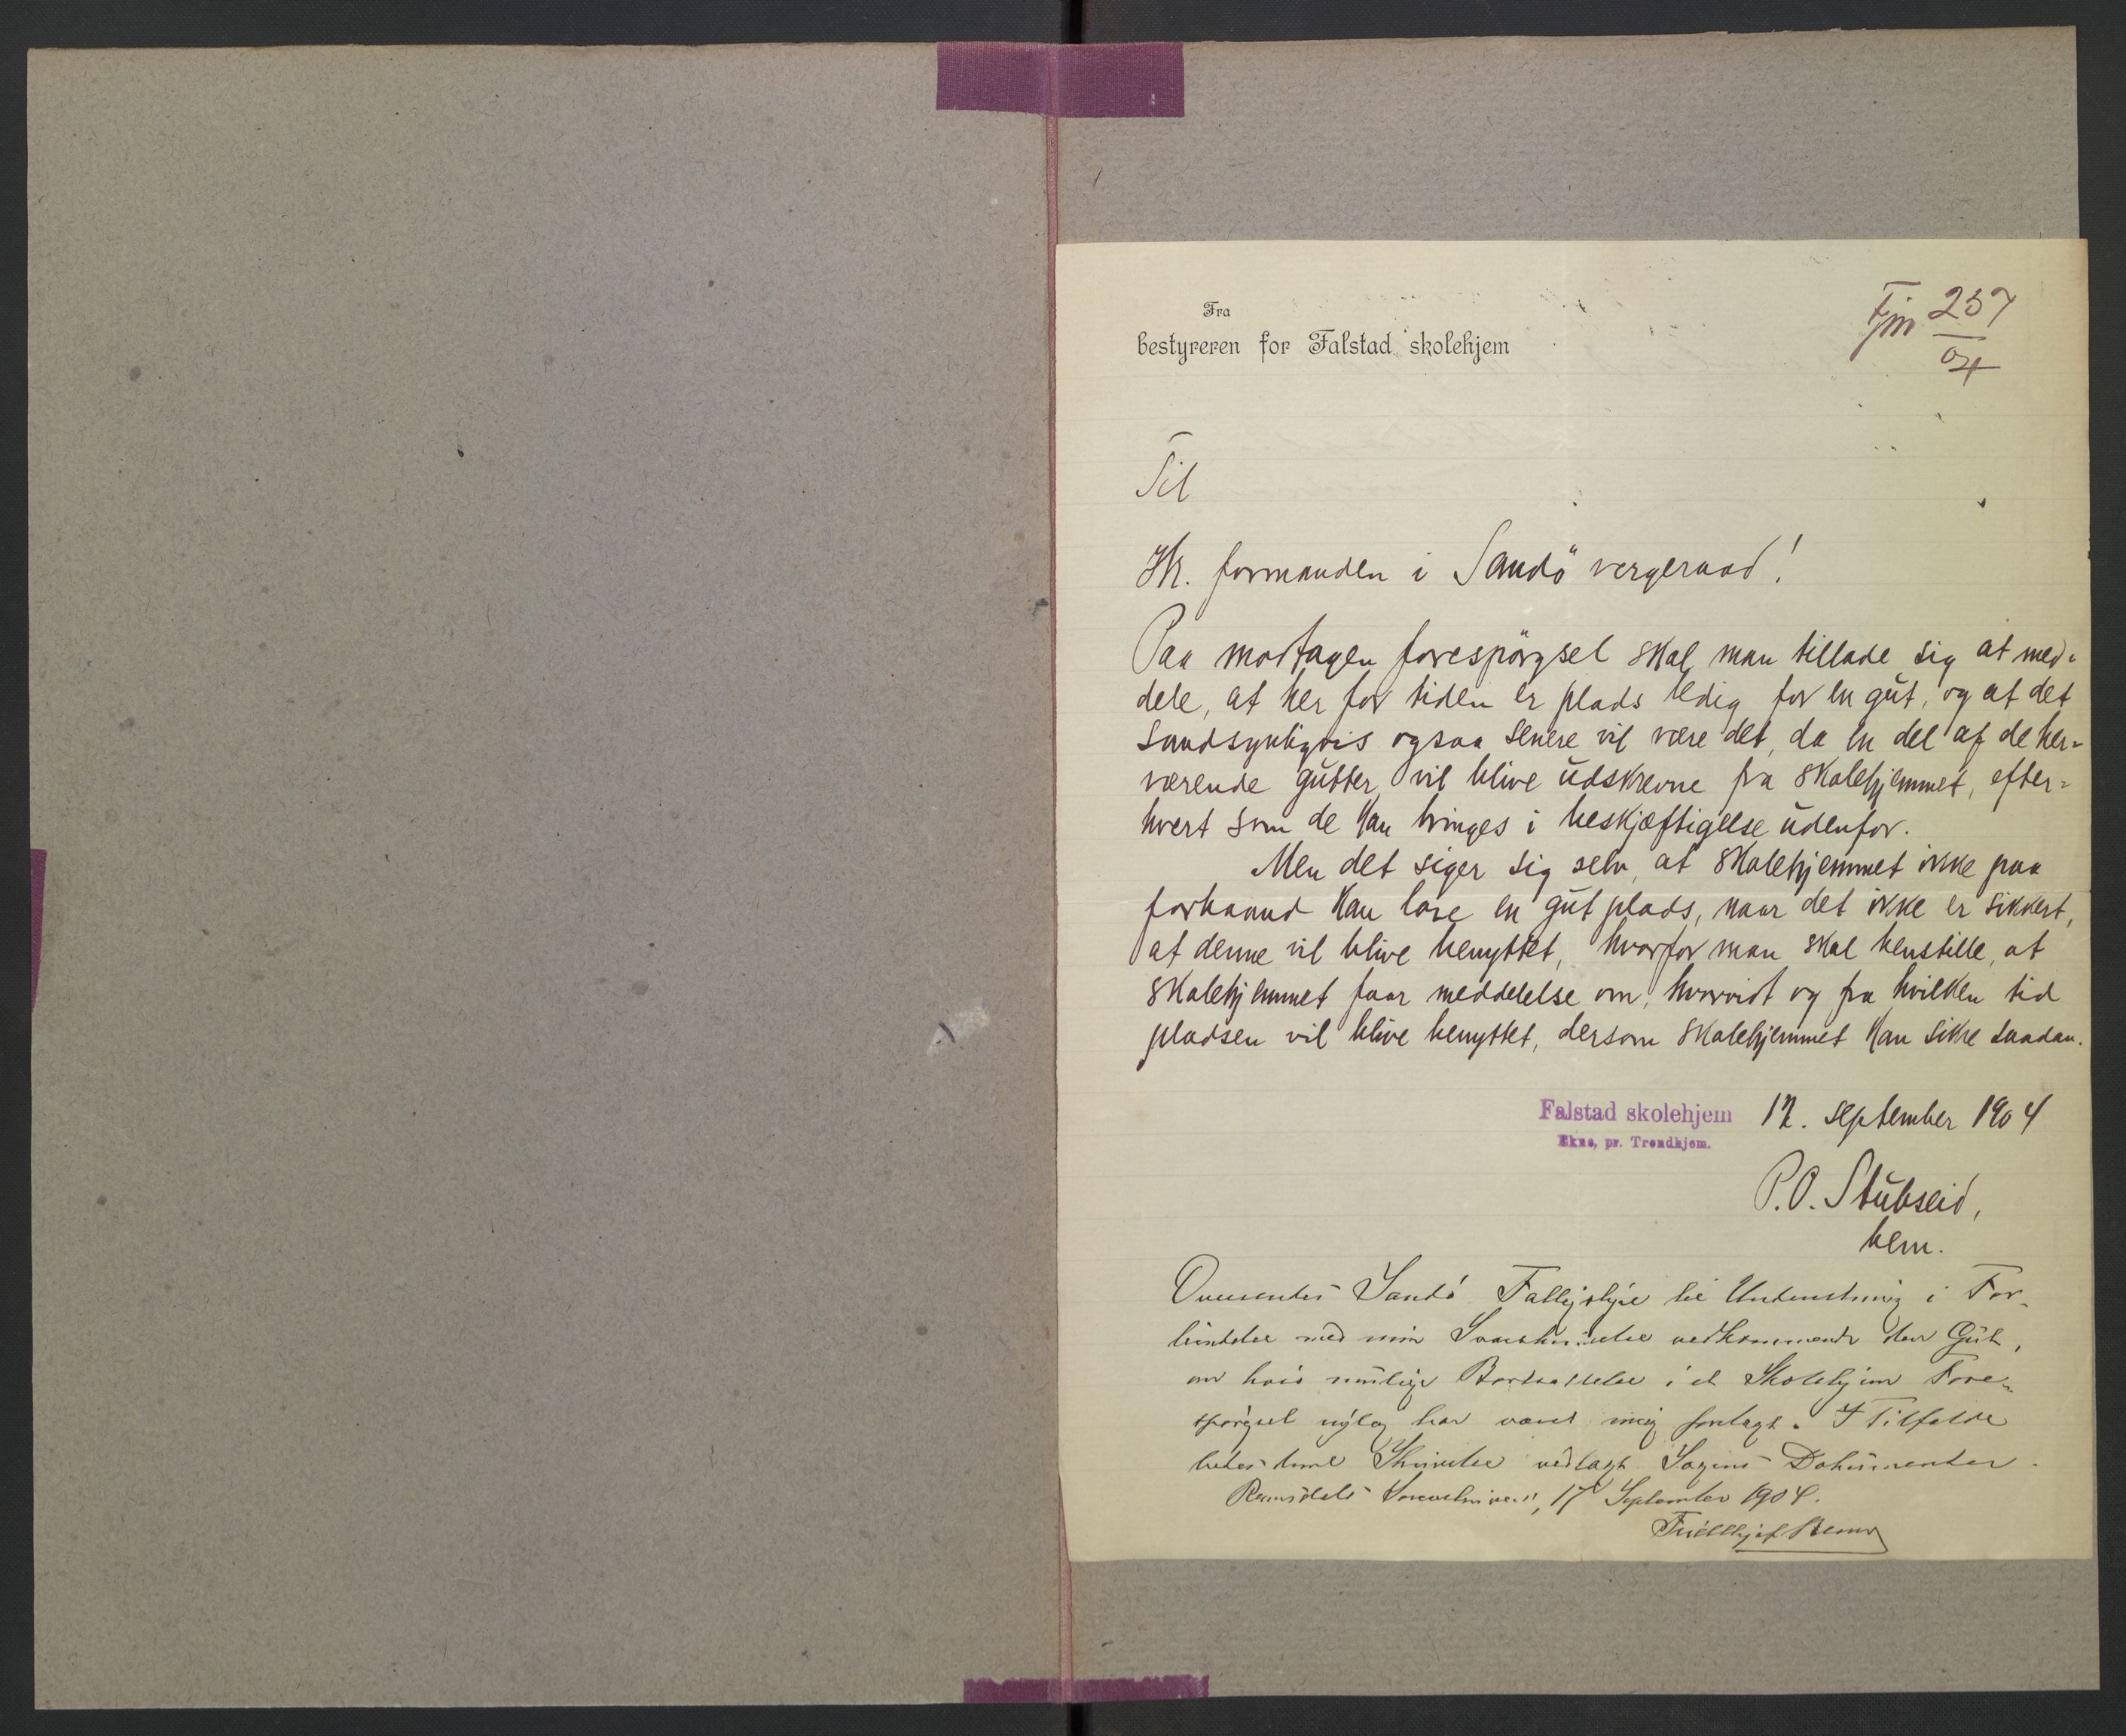 Fra
bestyreren for Falstad skolehjem
Fm 257
04
Til
Hr. formanden i Sandö vergeraad!
Paa modtagen forespörgsel skal man tillade sig at med-
dele, at her for tiden er plads ledig for en gut, og at det
sandsynligvis ogsaa senere vil være det, da en del af de her-
værende gutter vil blive udskrevne fra skolehjemmet, efter-
hvert som de kan bringes i beskjæftigelse udenfor.
Men det siger sig selv, at skolehjemmet ikke paa
forhaand kan love en gut plads, naar det ikke er sikkert,
at denne vil blive benyttet, hvorfor man skal henstille, at
skolehjemmet faar meddelelse om, hvorvidt og fra hvilken tid
pladsen vil blive benyttet, dersom skolehjemmet kan sikre saadan.
Falstad skolehjem 12. september 1904
Ekne, pr. Trondhjem.
P.O. Stubseid,
bem.
Oversendes Sandö Fattigstyre til Underretning i For-
bindelse med min vedkommende den Gut,
om hvis mulige Bortsættelse i et Skolehjem Fore-
spörgsel nylig har været mig forelagt. I Tilfælde
bedes Skrivelse vedlagt Sagens Dokumenter.
Romsdals Sorenskriveri, 17 September 1904.